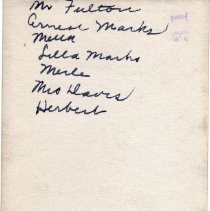 Mr Fulton
Ernest Marks
Metta
Lilla Marks
Merle
Mrs Davis
Herbert